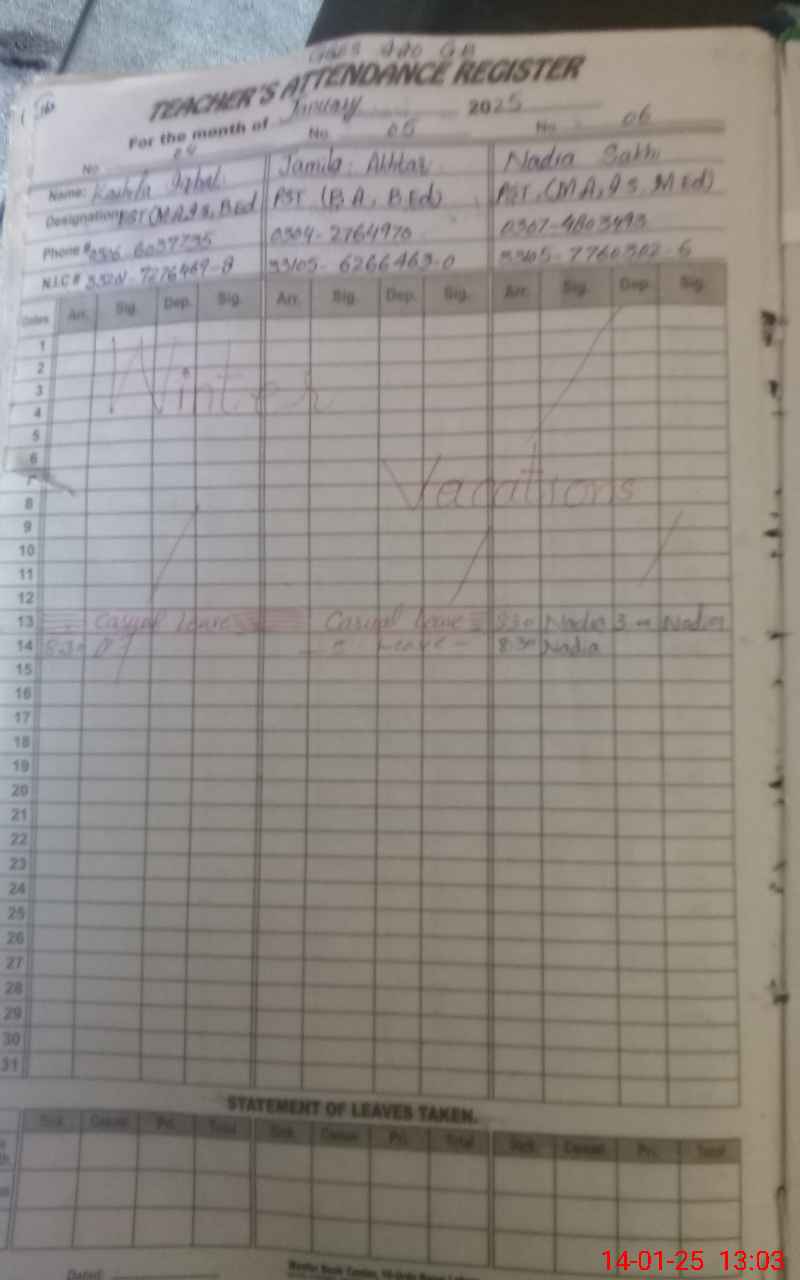 TEACHER'S ATTENDANCE REGISTER
For the month of January 2025
No. 04 No. 05 No. 06
Name: Iqbal Jamila Akhtar Nadia
Designation PST (M.A, B.Ed PST (B A, B.Ed) PST (M A, M Ed)
Phone # 6037735 0304-2764970 0307-4803493
N.I.C # 33105-6266463-0
Dates Arr. Sig. Dep. Sig. Arr. Sig. Dep. Sig. Arr. Sig. Dep. Sig.
1
2
3
Winter
4
5
6
7
Vacations
8
9
10
11
12
13 Casual leave Casual leave 8:30 Nadia 3 Nadia
14 8:30 Leave 8:30 Nadia
15
16
17
18
19
20
21
22
23
24
25
26
27
28
29
30
31
STATEMENT OF LEAVES TAKEN.
Sick Casual Pri. Total Sick Casual Pri. Total Sick Casual Pri. Total
Dated:
14-01-25 13:03